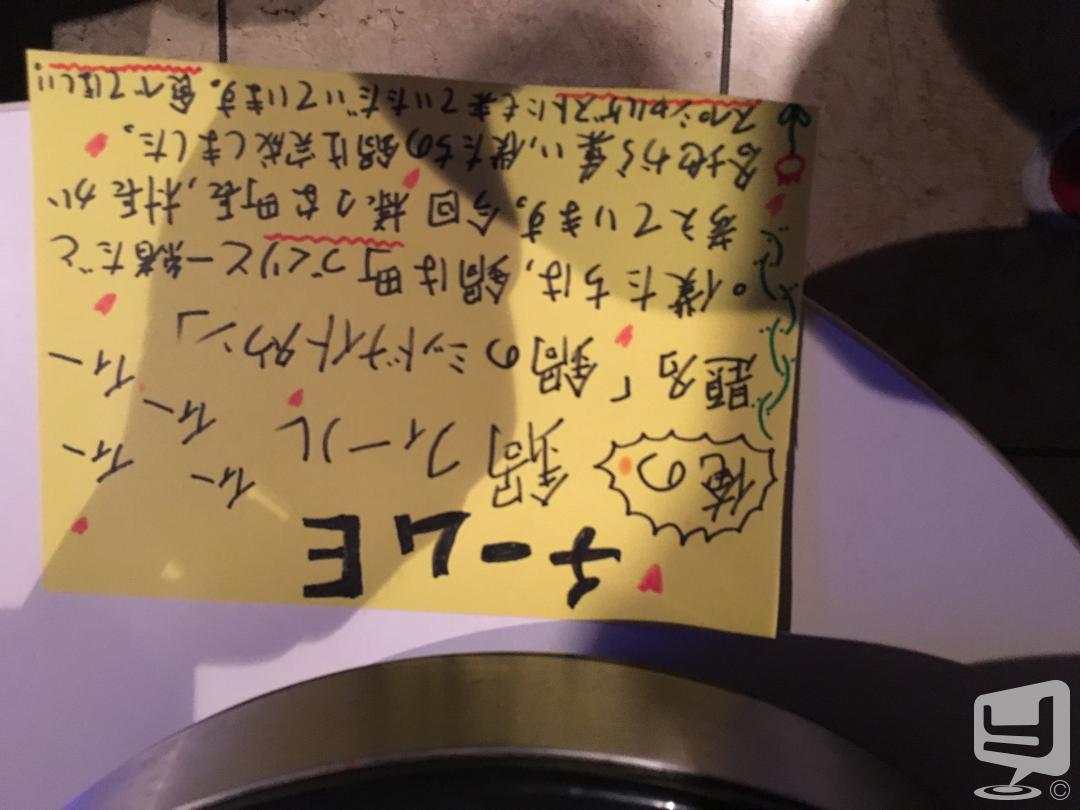 チームE
俺の 鍋フィール ィー ィー ィー ィー
題名「鍋のミッドナイトタウン」
。僕たちは、鍋は町づくりと一緒だと
考えています。今回様々な町長、村長が
各地から集い、僕たちの鍋は完成しました。
スペシャルゲストにも来ていただいています。食べてほしい!